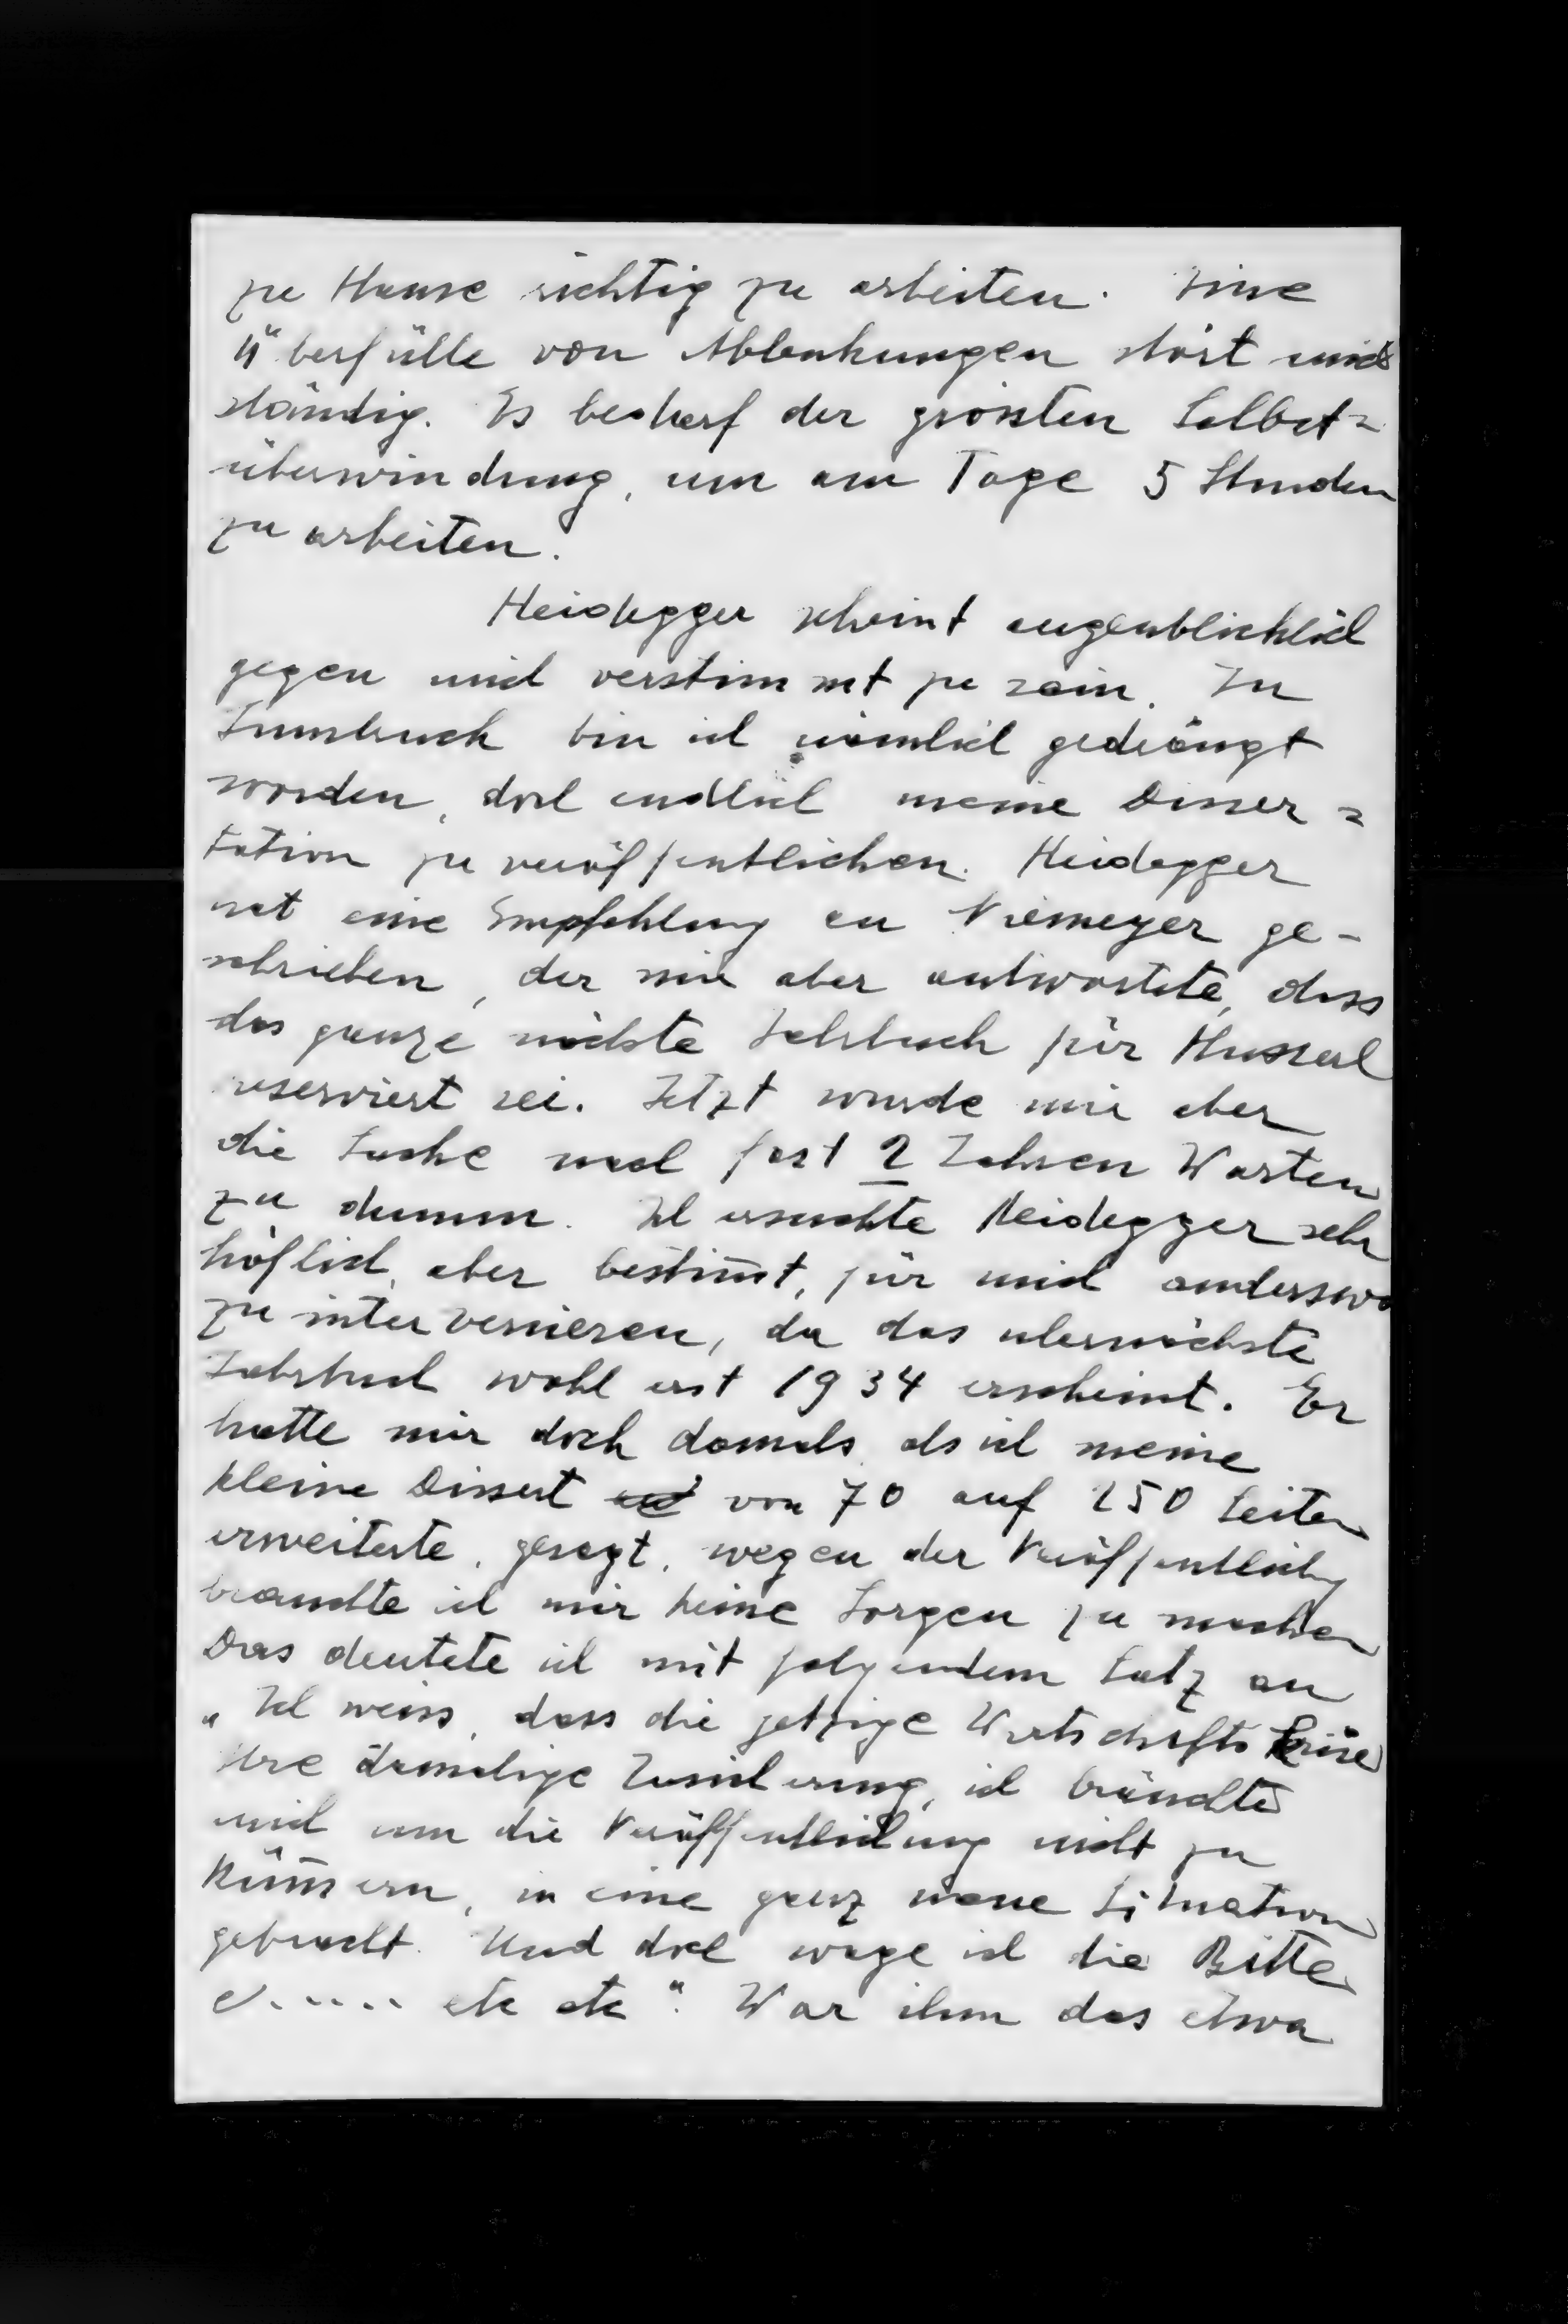 zu Hause richtig zu arbeiten. Eine
Überfülle von Ablenkungen stört mich
ständig. Es bedarf der grössten Selbst=
überwindung, um am Tage 5 Stunden
zu arbeiten.
Heidegger scheint augenblicklich
gegen mich verstimmt zu sein. In
Innsbruck bin ich nämlich gedrängt
worden, doch endlich meine Disser=
tation zu veröffentlichen. Heidegger
hat eine Empfehlung an Niemeyer ge-
schrieben, der mir aber antwortete, dass
das ganze nächste Jahrbuch für Husserl
reserviert sei. Jetzt wurde mir aber
die Sache nach fast 2 Jahren Warten
zu dumm. Ich ersuchte Heidegger sehr
höflich, aber bestim̅t, für mich anderswo
zu intervenieren, da das übernächste
Jahrbuch wohl erst 1934 erscheint. Er
hatte mir doch damals, als ich meine
kleine Dissert von 70 auf 250 Seiten
erweiterte, gesagt, wegen der Veröffentlichg
brauchte ich mir keine Sorgen zu machen
Das deutete ich mit folgendem Satz an
„Ich weiss, dass die jetzige Wirtschaftskrise
Ihre damalige Zusicherung, ich bräuchte
mich um die Veröffentlichung nicht zu
küm̅ern, in eine ganz neue Situation
gebracht. Und doch wage ich die Bitte
e..... etc etc". War ihm das etwa